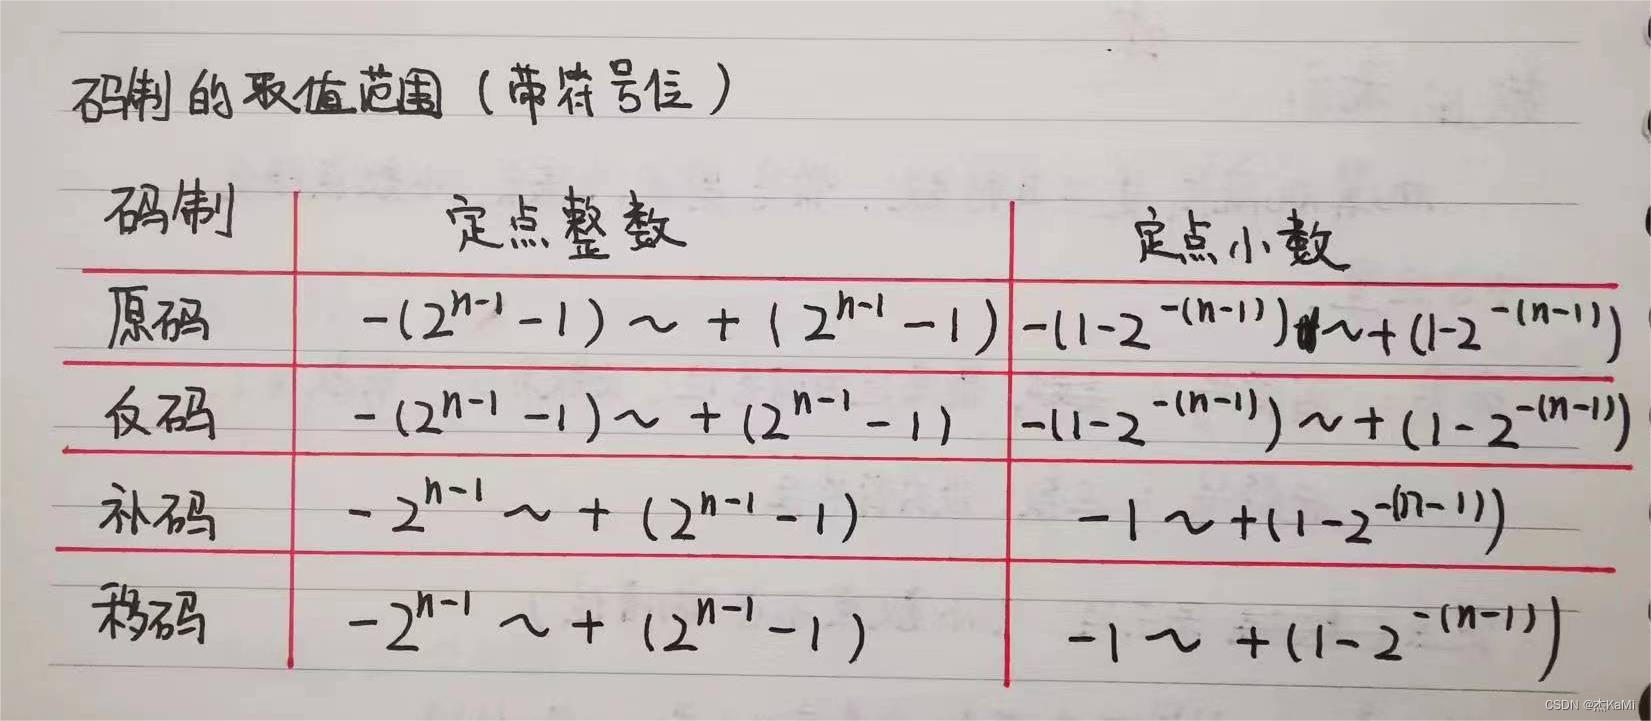 码制的取值范围（带符号位）
码制 定点整数 定点小数
原码 -(2^{n-1}-1) ~ +(2^{n-1}-1) -(1-2^{-(n-1)}) ~ +(1-2^{-(n-1)})
反码 -(2^{n-1}-1) ~ +(2^{n-1}-1) -(1-2^{-(n-1)}) ~ +(1-2^{-(n-1)})
补码 -2^{n-1} ~ +(2^{n-1}-1) -1 ~ +(1-2^{-(n-1)})
移码 -2^{n-1} ~ +(2^{n-1}-1) -1 ~ +(1-2^{-(n-1)})
CSDN @杰KaMi